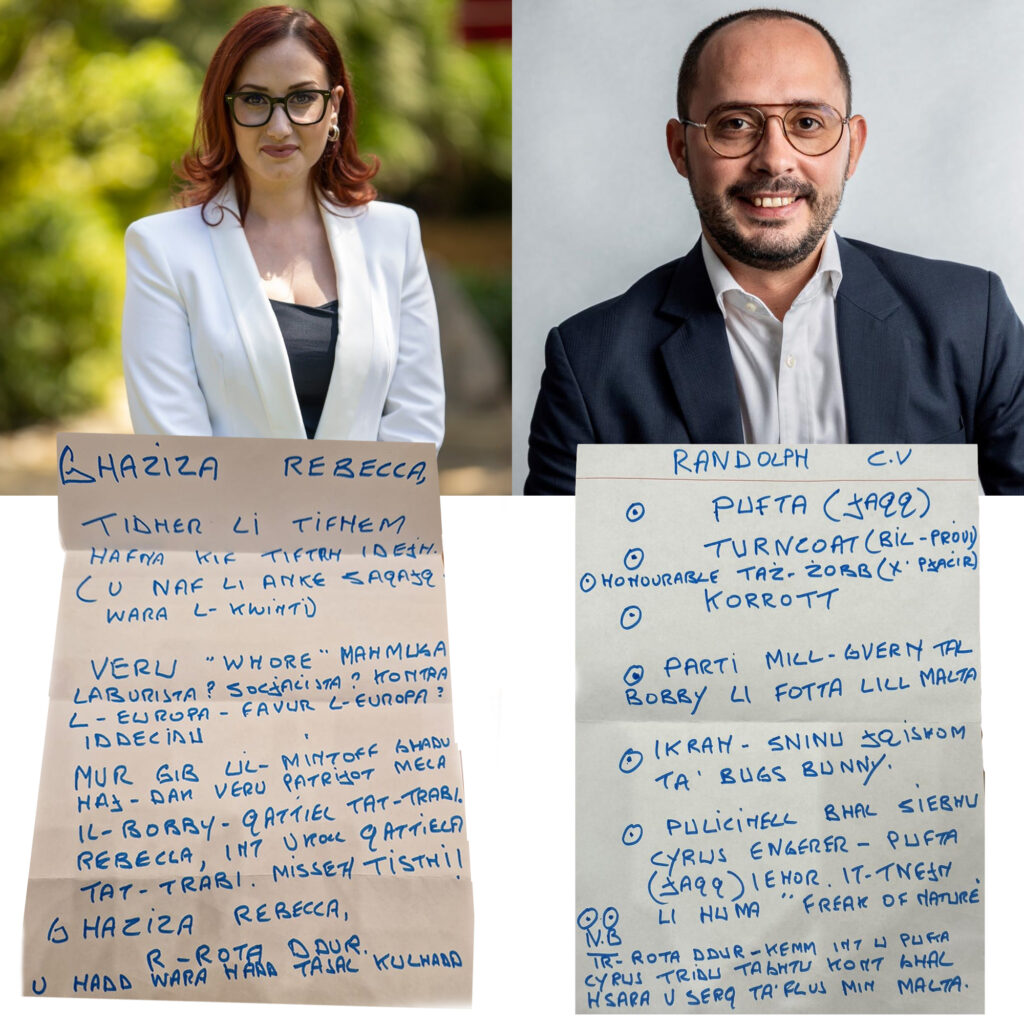 GHAZIZA REBECCA,
TIDHER LI TIFHEM
HAFNA KIF TIFTAH IDEJH.
(U NAF LI ANKE SAQAJQ
WARA L-KWINTI)
VERU "WHORE" MAHMUGA
LABURISTA? SOCJALISTA? KONTRA
L-EUROPA - FAVUR L-EUROPA?
IDDECIDU
MUR GIB LIL-MINTOFF GHADU
HAJ-DAK VERU PATRIJOT MELA
IL-BOBBY-QATTIEL TAT-TRABI.
REBECCA, INT UKOLL QATTIELA
TAT-TRABI. MISSEK TISTHI!
GHAZIZA REBECCA,
R-ROTA DDUR.
U HADD WARA HADD TASAL KULHADD
RANDOLPH C.V
PUFTA (JAQQ)
TURNCOAT (BIL-PROVI)
HONOURABLE TAŻ-ŻOBB (X'PJAĊIR)
KORROTT
PARTI MILL-GVERN TAL
BOBBY LI FOTTA LILL MALTA
IKRAH - SNINU JQISHOM
TA' BUGS BUNNY.
PULICINELL BHAL SIEBHU
CYRUS ENGERER - PUFTA
(JAQQ) IEHOR. IT-TNEJN
LI HUMA "FREAK OF NATURE
N.B
IR-ROTA DDUR-KEMM INT U PUFTA
CYRUS TRIDU TAGHTU KONT GHAL
HSARA U SERQ TA'FLUS MIN MALTA.